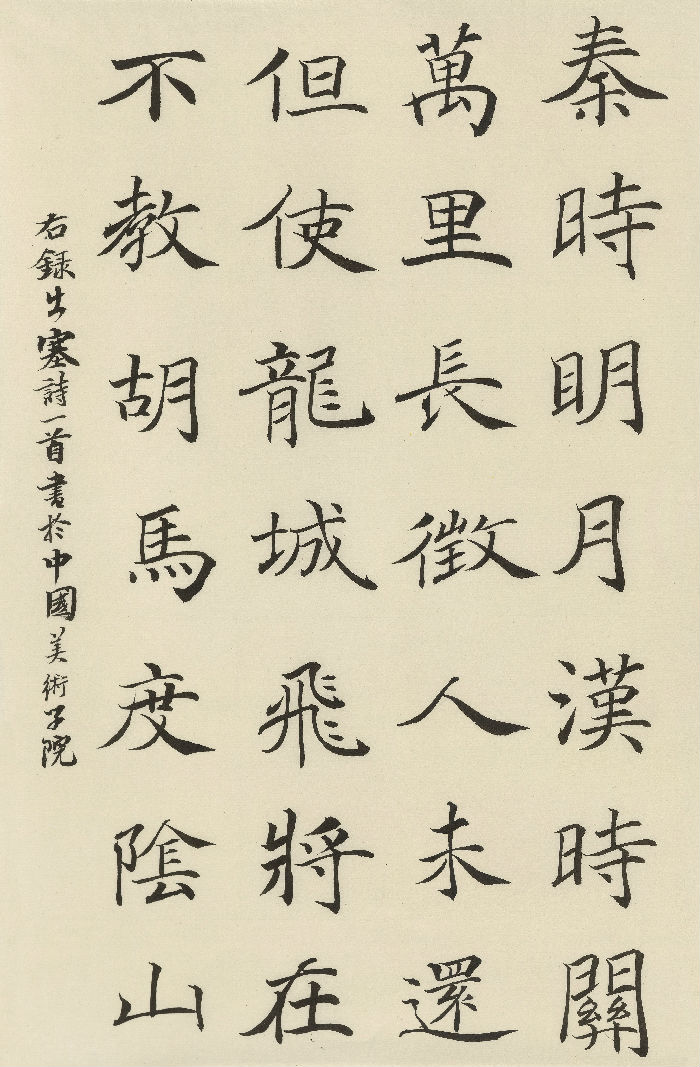 秦時明月漢時關
萬里長徵人未還
但使龍城飛將在
不教胡馬度陰山
右録出塞詩一首書於中國美術學院